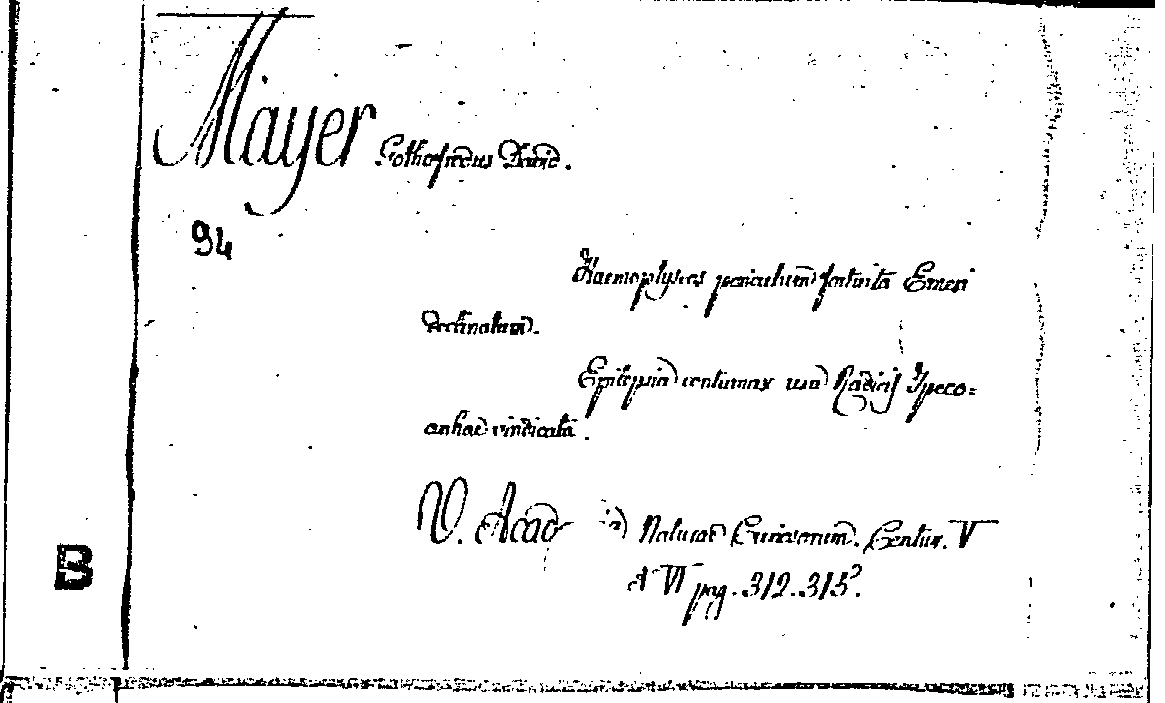 Mayer Gothofredus David.
94
Haemoptyseos periculum fortuita Emesi
declinatum.
Epilepsia contumax usu Radicis Ipeco=
anhae vindicata.
V. Acad Naturae Curiosorum. Centur. V
et VI pag. 312. 315.
B